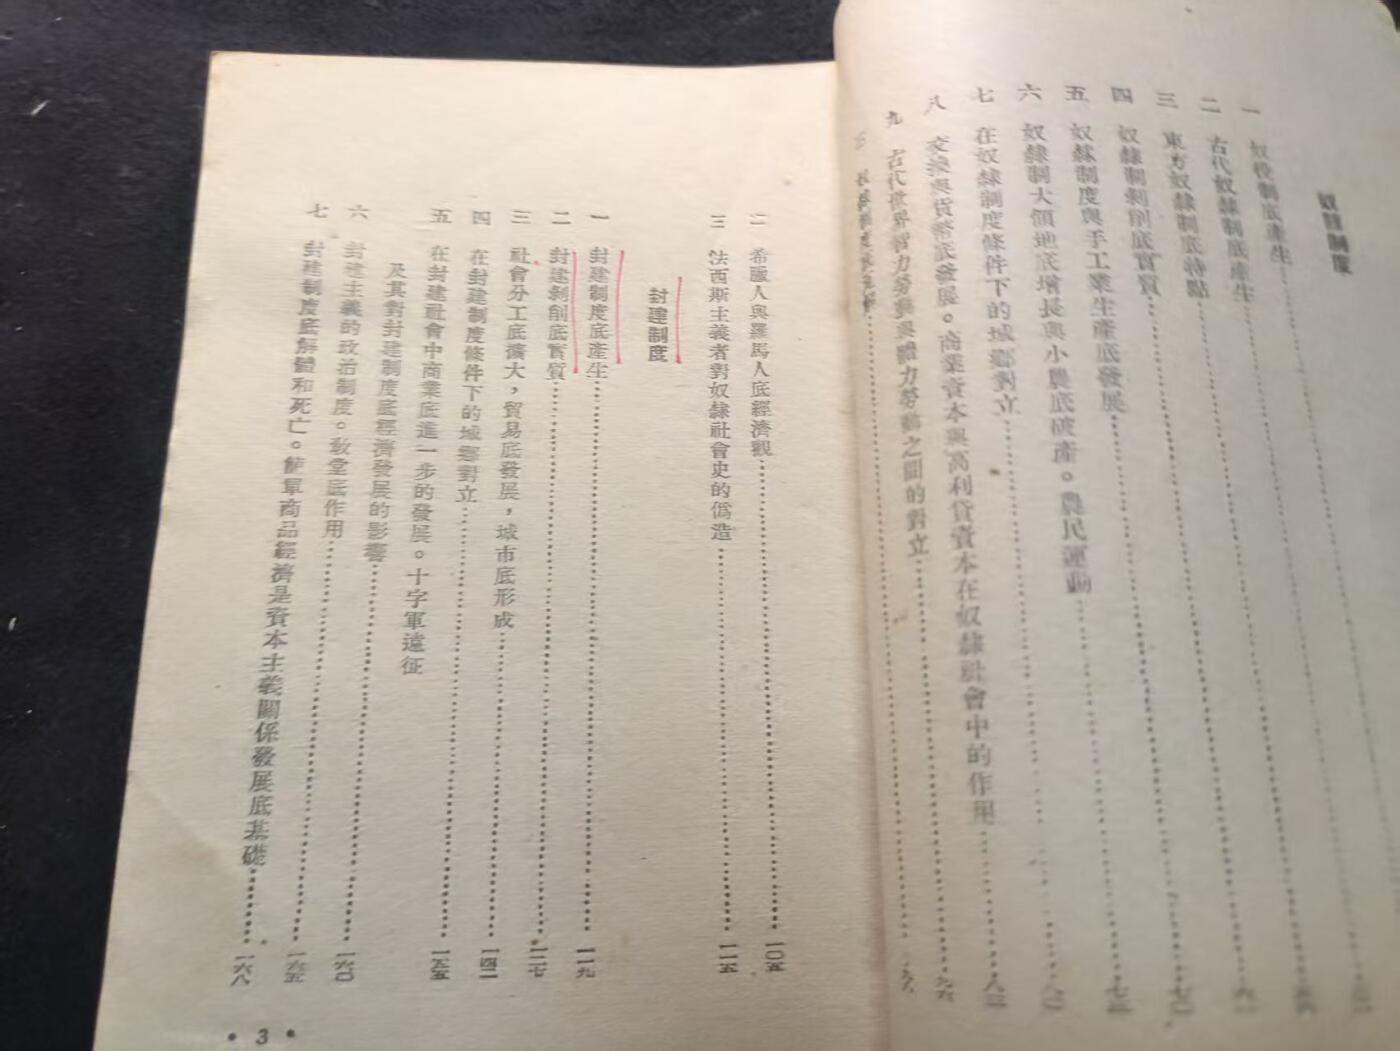 奴隸制度
一 奴役制底產生
二 古代奴隸制底產生
三 東方奴隸制底特點
四 奴隸制剝削底實質
五 奴隸制度與手工業生產底發展
六 奴隸制大領地底增長與小農底破產。農民運動
七 在奴隸制度條件下的城鄉對立
八 交換與貨幣底發展。商業資本與高利貸資本在奴隸社會中的作用
九 古代世界智力勞動與體力勞動之間的對立
二 希臘人與羅馬人底經濟觀……一〇五
三 法西斯主義者對奴隸社會史的僞造……一一五
封建制度
一 封建制度底產生……一一九
二 封建剝削底實質……一二七
三 社會分工底擴大，貿易底發展，城市底形成……一四二
四 在封建制度條件下的城鄉對立……一五五
五 在封建社會中商業底進一步的發展。十字軍遠征
及其對封建制度底經濟發展的影響……一六〇
六 封建主義的政治制度。教堂底作用……一六五
七 封建制度底解體和死亡。簡單商品經濟是資本主義關係發展底基礎……一六八
• 3 •